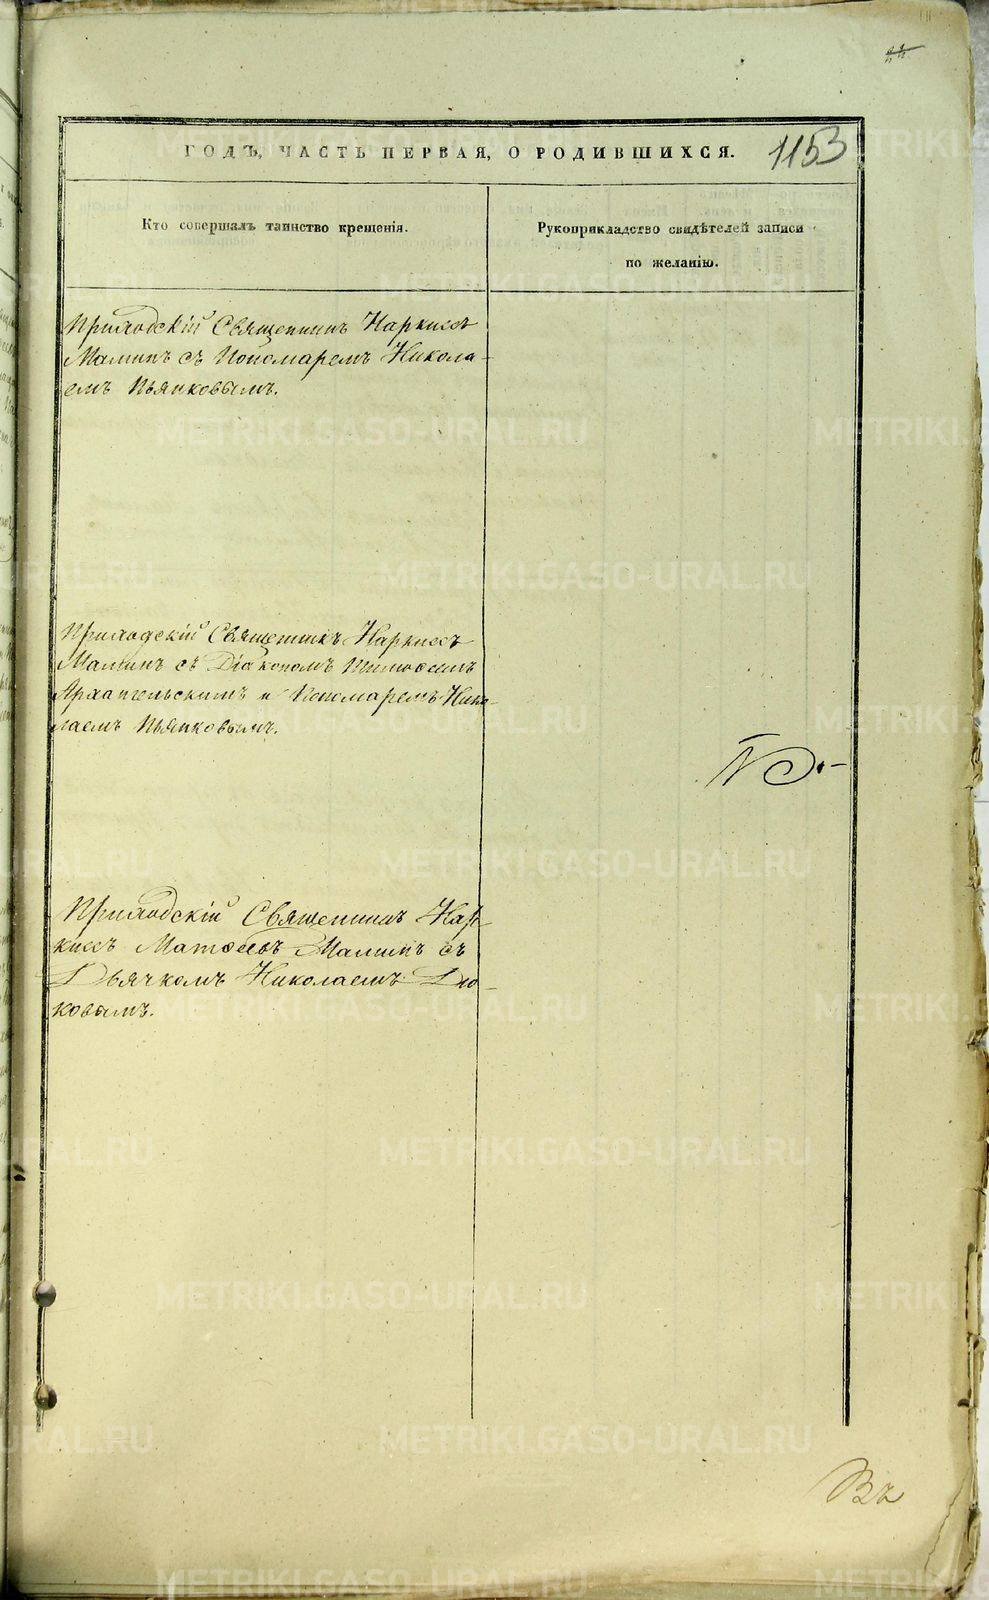 ГОДЪ, ЧАСТЬ ПЕРВАЯ, О РОДИВШИХСЯ. 1153
Кто совершалъ таинство крещенія.
Рукоприкладство свидѣтелей записи
по желанію.
Приходскій Священникъ Наркисъ
Маминъ съ Пономаремъ Никола-
емъ Пьянковымъ.
Приходскій Священникъ Наркисъ
Маминъ съ Діакономъ Тимоѳеемъ
Архангельскимъ и Пономаремъ Нико-
лаемъ Пьянковымъ.
Приходскій Священникъ Нар-
кисъ Матѳеевъ Маминъ съ
Дьячкомъ Николаемъ Дю-
ковымъ.
Въ
METRIKI.GASO-URAL.RU